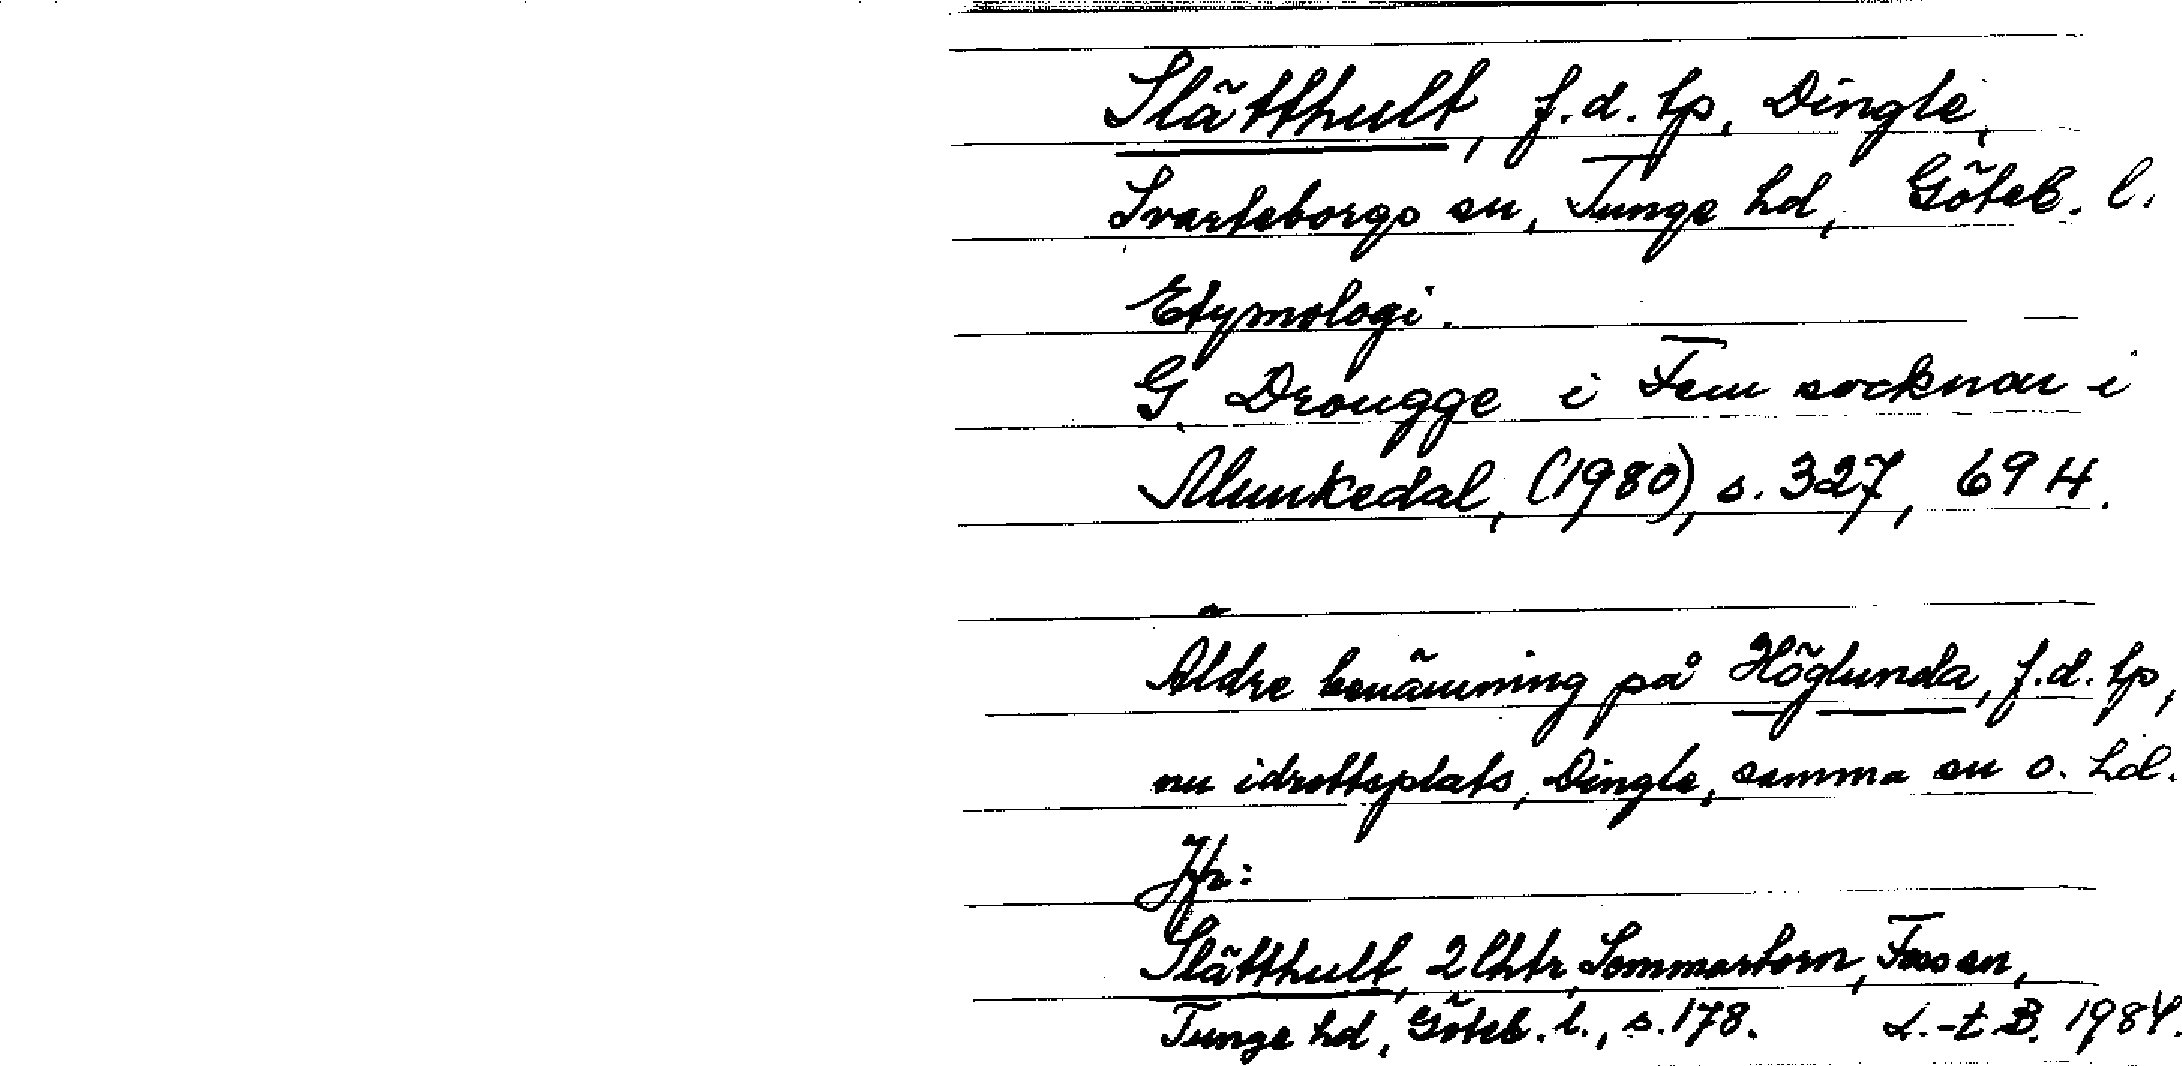 Slätthult, f.d. tp, Dingle,
Svarteborgs sn, Tunge hd, Göteb. l.
Etymologi.
G. Drougge i Fem socknar i
Munkedal, (1980), s. 327, 694.
Äldre benämning på Höglunda, f.d. tp,
nu idrottsplats, Dingle, samma sn o. hd.
Jfr:
Slätthult, 2 lhtr, Sommartorn, Foss sn,
Tunge hd, Göteb. l., s. 178. L.-t B. 1984.